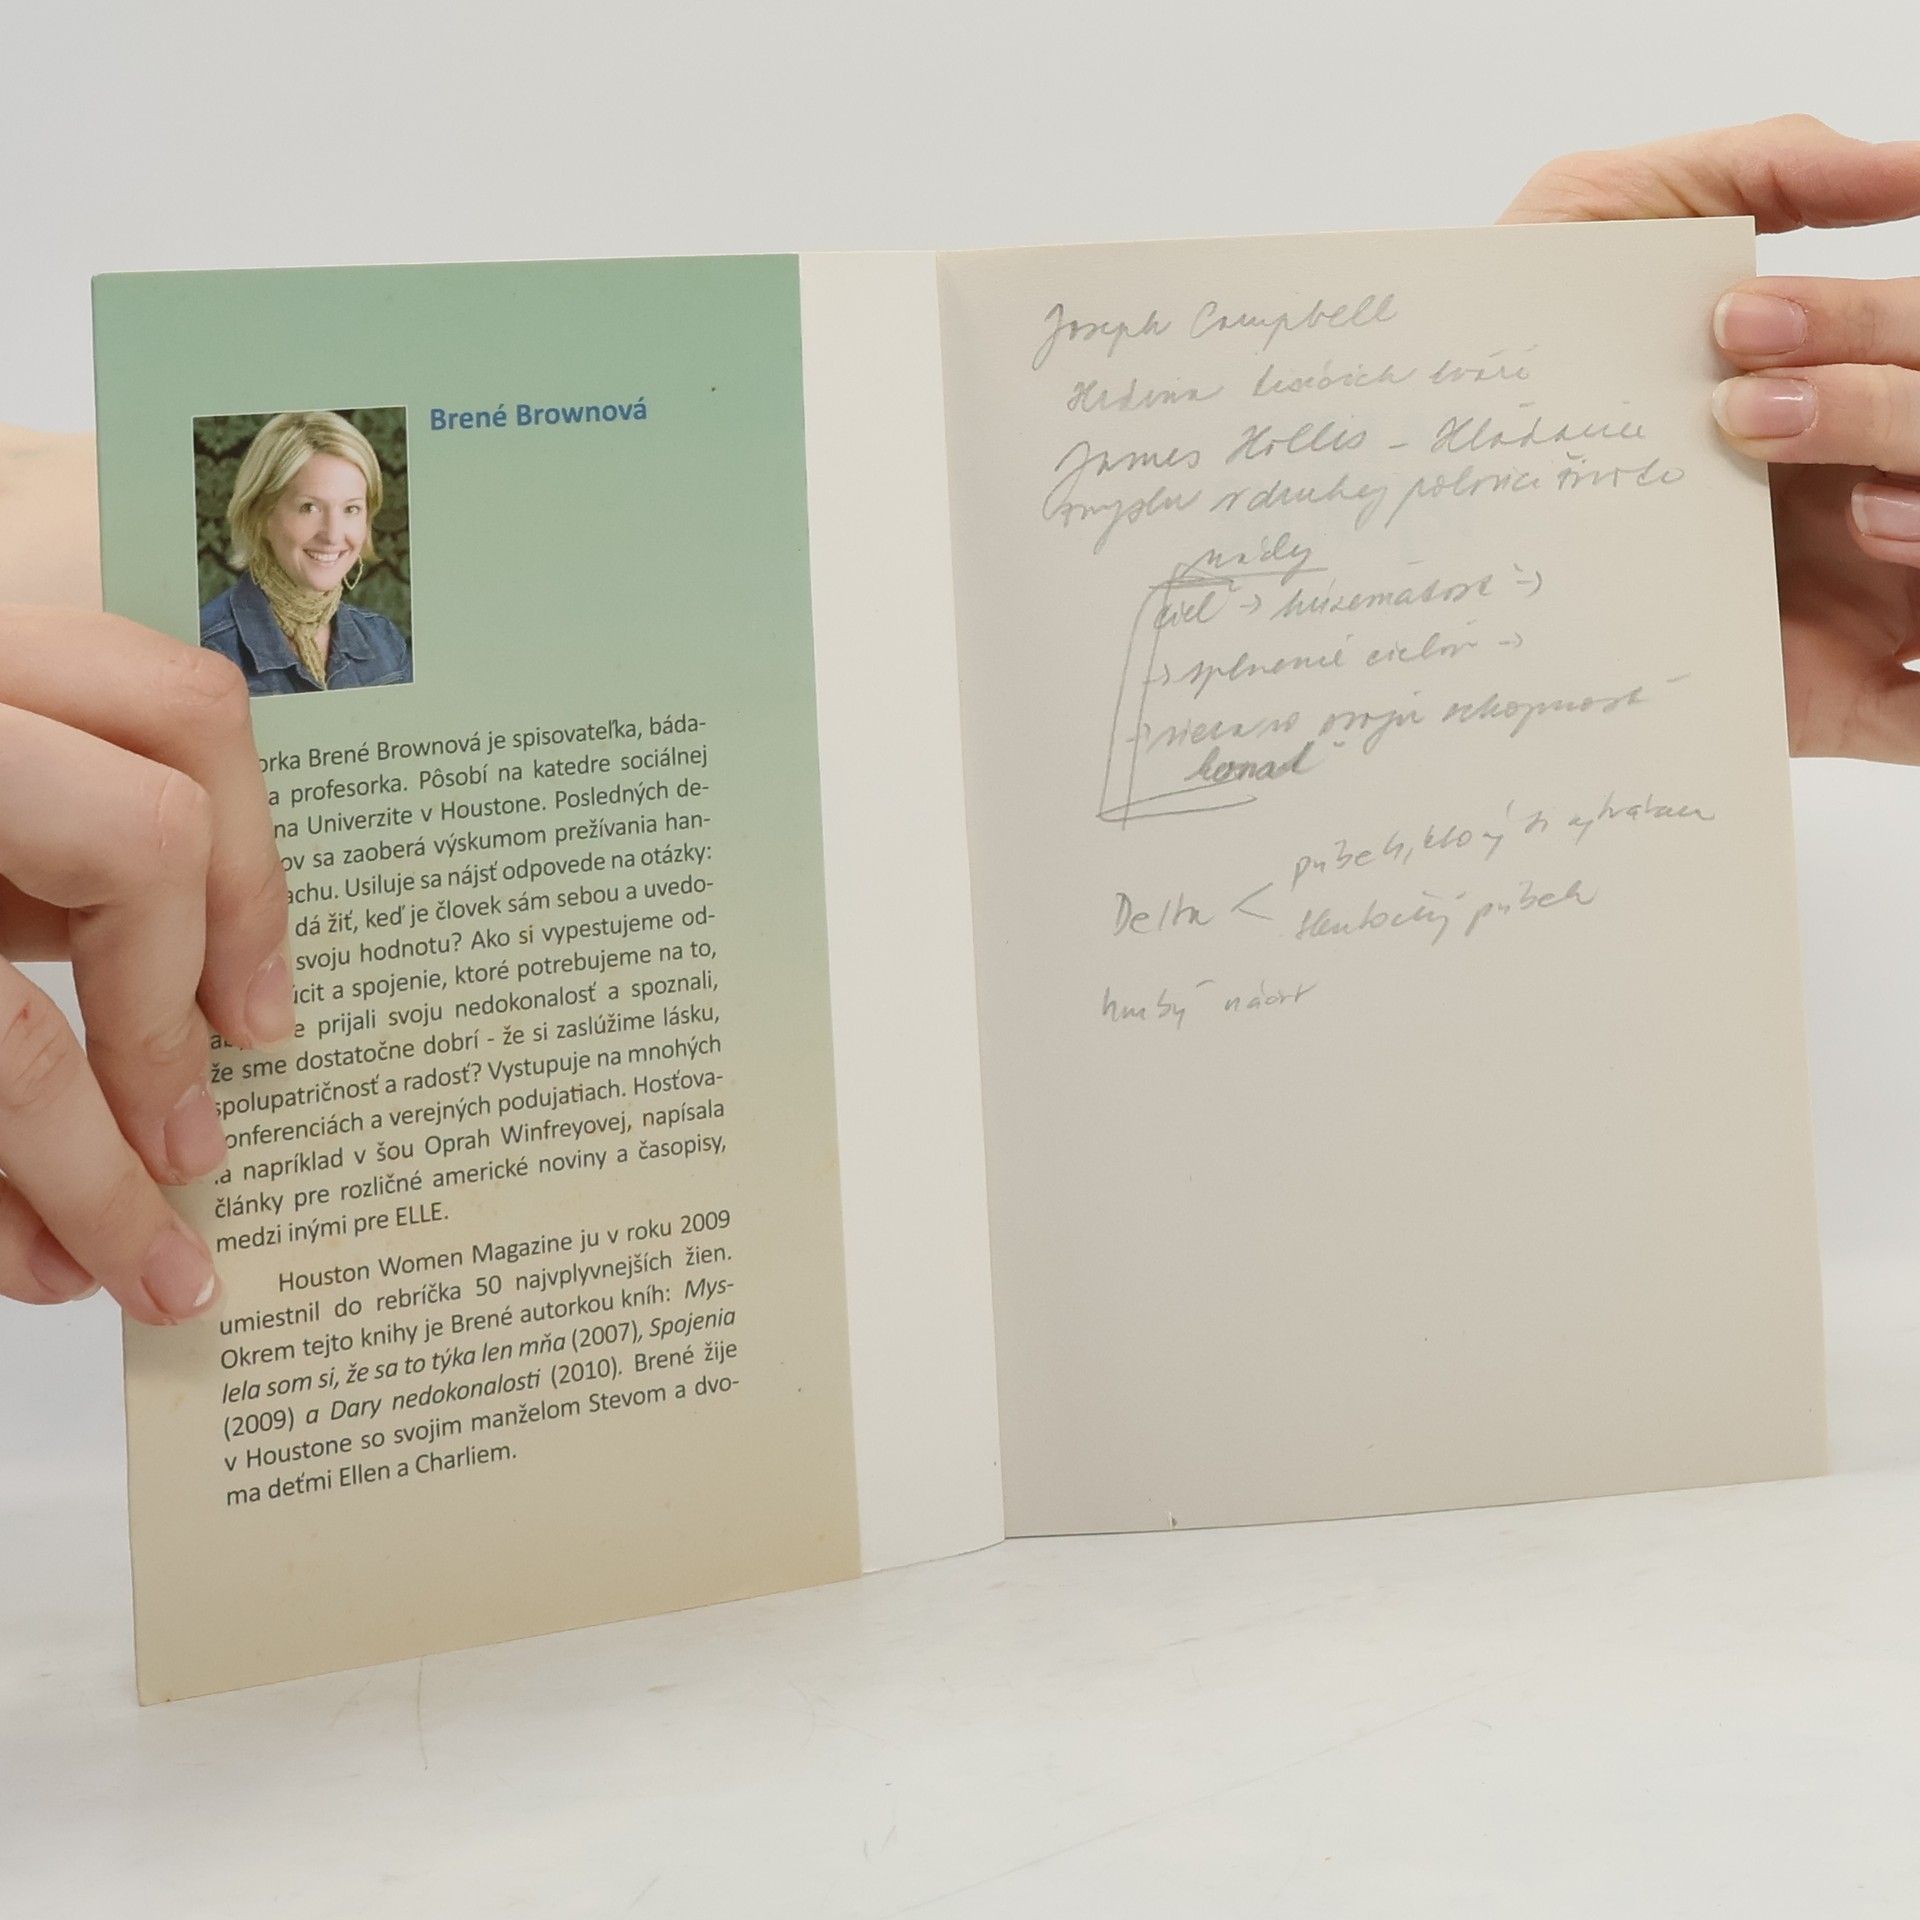 Brené Brownová
orka Brené Brownová je spisovateľka, báda-
a profesorka. Pôsobí na katedre sociálnej
na Univerzite v Houstone. Posledných de-
ov sa zaoberá výskumom prežívania han-
achu. Usiluje sa nájsť odpovede na otázky:
dá žiť, keď je človek sám sebou a uvedo-
svoju hodnotu? Ako si vypestujeme od-
úcit a spojenie, ktoré potrebujeme na to,
e prijali svoju nedokonalosť a spoznali,
že sme dostatočne dobrí - že si zaslúžime lásku,
spolupatričnosť a radosť? Vystupuje na mnohých
onferenciách a verejných podujatiach. Hosťova-
a napríklad v šou Oprah Winfreyovej, napísala
články pre rozličné americké noviny a časopisy,
medzi inými pre ELLE.
Houston Women Magazine ju v roku 2009
umiestnil do rebríčka 50 najvplyvnejších žien.
Okrem tejto knihy je Brené autorkou kníh: Mys-
lela som si, že sa to týka len mňa (2007), Spojenia
(2009) a Dary nedokonalosti (2010). Brené žije
v Houstone so svojim manželom Stevom a dvo-
ma deťmi Ellen a Charliem.
Joseph Campbell
Hrdina tisícich tváří
James Hollis - Hľadanie
zmyslu v druhej polovici života
cieľ → húževnatosť →
→ splnenie cieľov →
→ viera vo svoju schopnosť
konať
Delta < príbeh, ktorý si
skutočný príbeh
hrubý náčrt